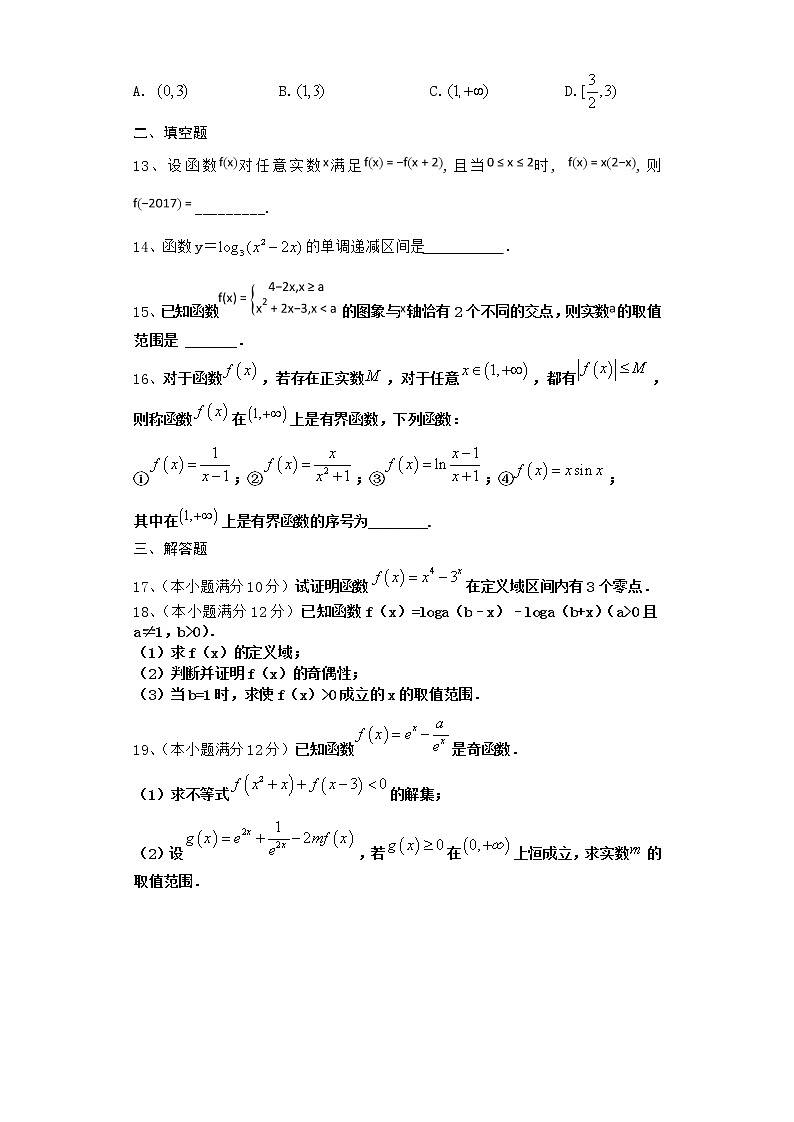 A. (0,3) B.(1,3) C.(1,+∞) D.[3/2,3)
二、填空题
13、设函数f(x)对任意实数x满足f(x)=−f(x+2),且当0≤x≤2时, f(x)=x(2−x),则
f(−2017)=_________.
14、函数y＝log₃(x²−2x)的单调递减区间是__________.
15、已知函数f(x)={4−2x,x≥a x²+2x−3,x<a 的图象与x轴恰有2个不同的交点,则实数a的取值
范围是 _______.
16、对于函数f(x),若存在正实数M,对于任意x∈(1,+∞),都有|f(x)|≤M,
则称函数f(x)在(1,+∞)上是有界函数,下列函数:
①f(x)=1/(x−1);②f(x)=x/(x²+1);③f(x)=ln (x−1)/(x+1);④f(x)=xsin x;
其中在(1,+∞)上是有界函数的序号为________.
三、解答题
17、(本小题满分10分)试证明函数f(x)=x⁴−3ˣ在定义域区间内有3个零点.
18、(本小题满分12分)已知函数f(x)=loga(b﹣x)﹣loga(b+x)(a>0且
a≠1,b>0).
(1)求f(x)的定义域;
(2)判断并证明f(x)的奇偶性;
(3)当b=1时,求使f(x)>0成立的x的取值范围.
19、(本小题满分12分)已知函数f(x)=eˣ−a/eˣ是奇函数.
(1)求不等式f(x²+x)+f(x−3)<0的解集;
(2)设g(x)=e²ˣ+1/e²ˣ−2mf(x),若g(x)≥0在(0,+∞)上恒成立,求实数m的
取值范围.